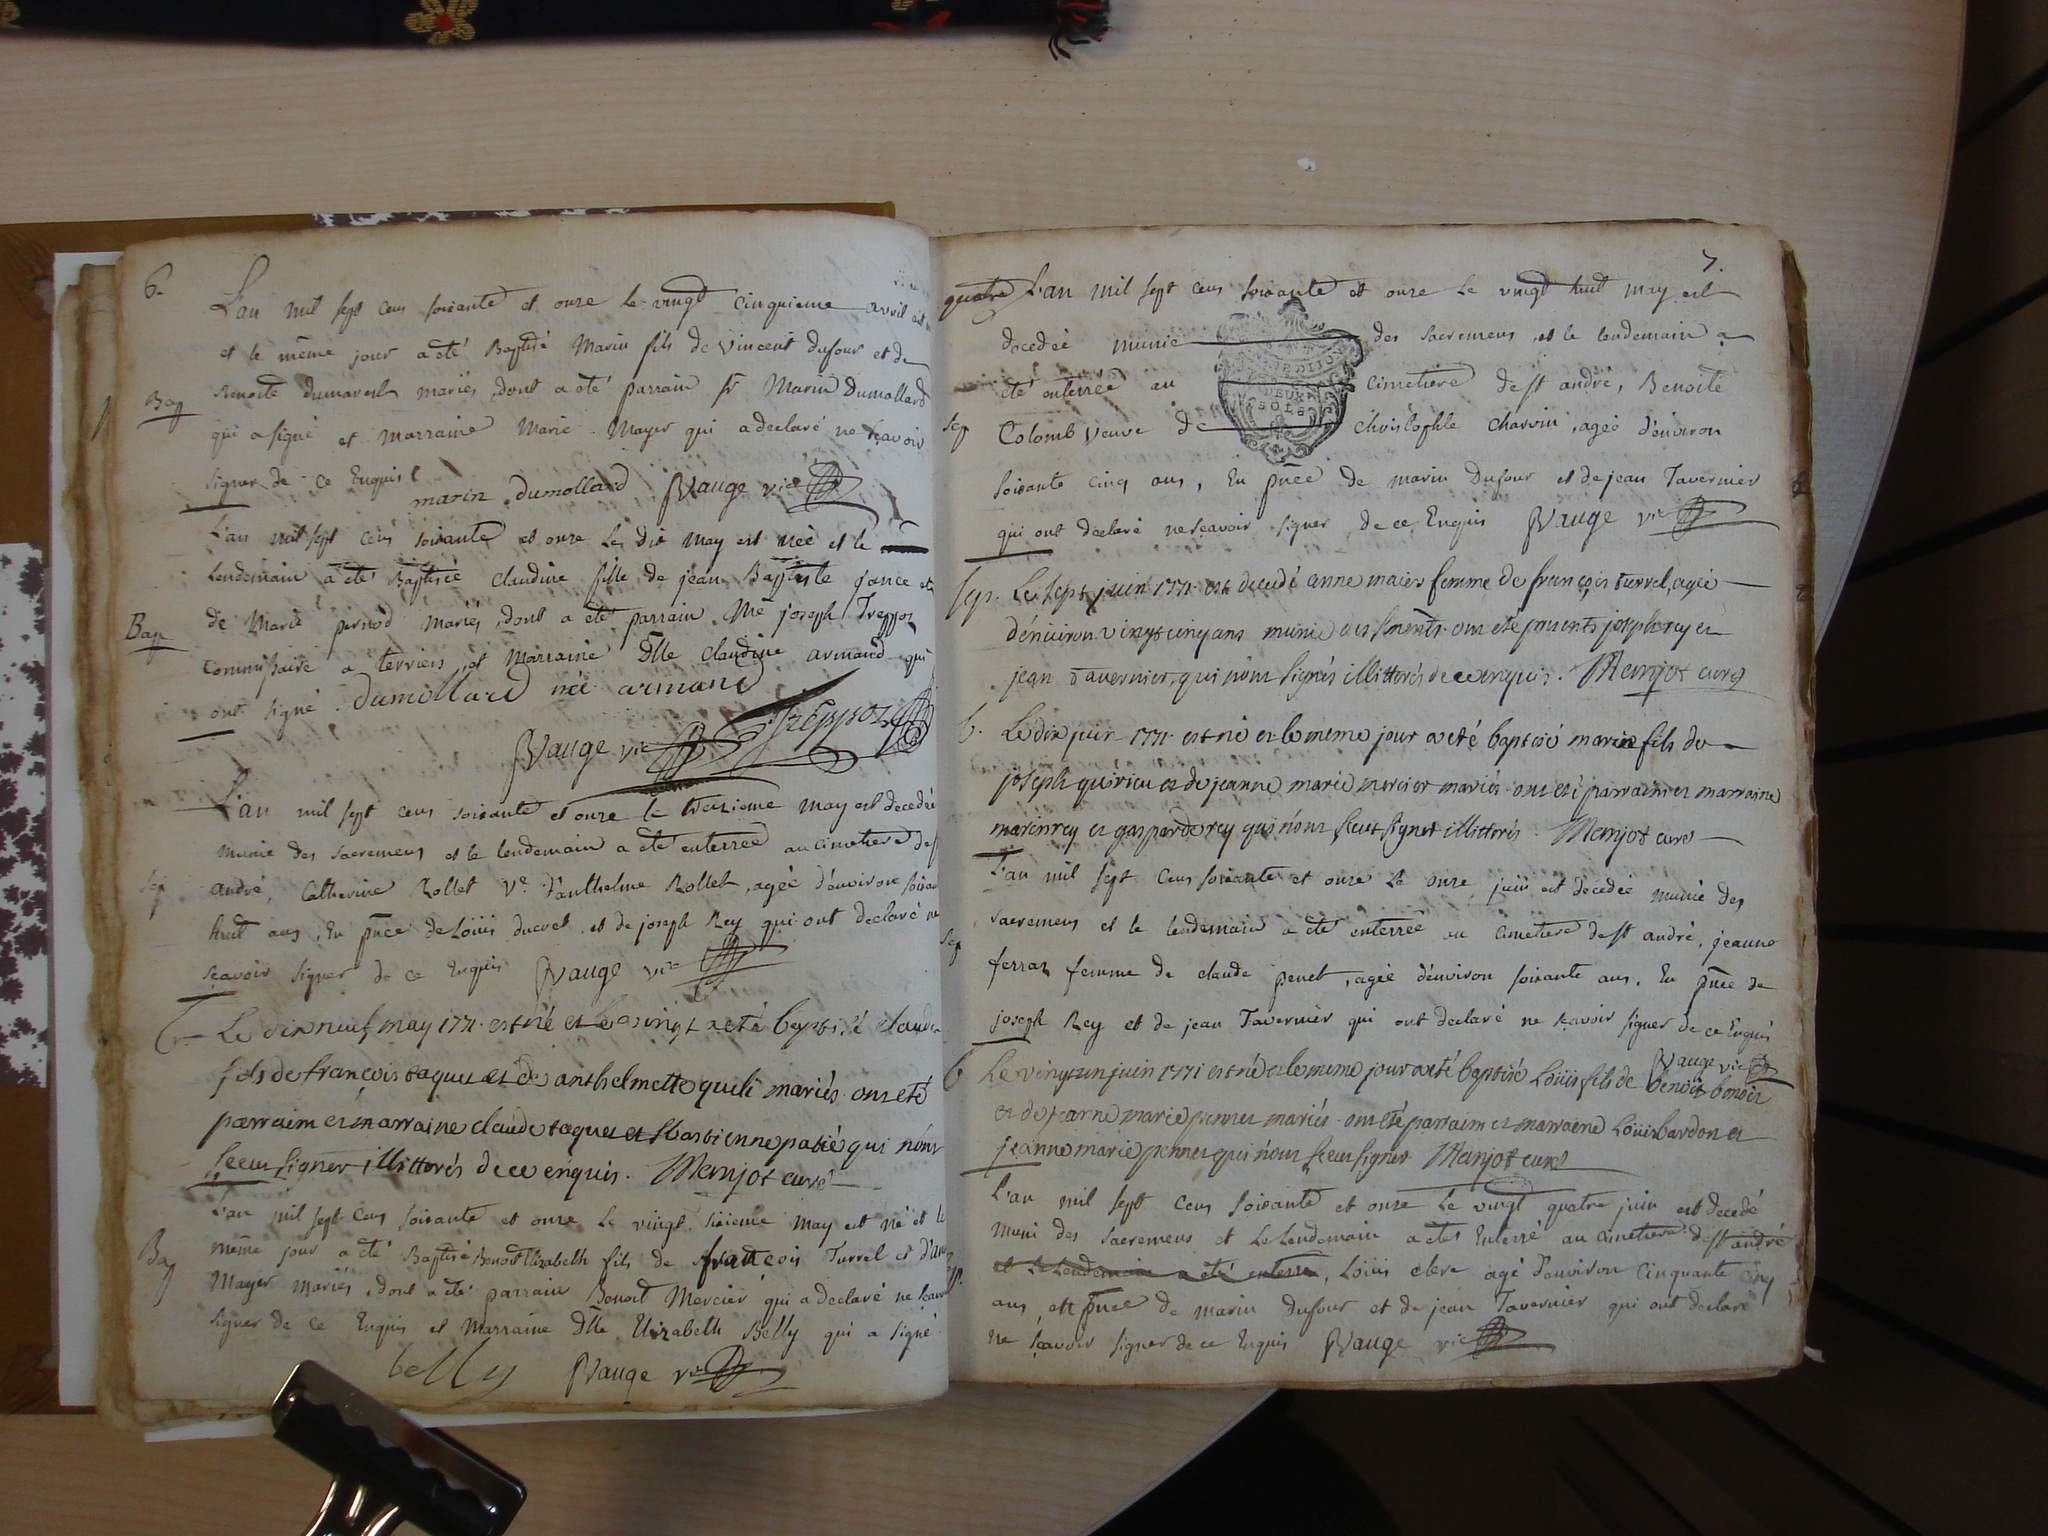 6.
L'an mil sept cens soixante et onze le vingt cinquieme avril est
et le même jour a été Baptisé Marin fils de Vincent Dufour et de
Bap Benoite dumarest mariés, dont a été parrain sr Marin Dumollard
qui a signé et marraine Marie Mayer qui a declaré ne sçavoir
signer de ce Enquis
marin dumollard Vauge vic
L'an mil sept cens soixante et onze le dix may est née et le
Lendemain a été Baptisée claudine fille de jean Baptiste
Bap de Marie pernod mariés, dont a été parrain Me joseph Treppoz
Commissaire a terriers, et Marraine Dlle claudine armand qui
ont signé. dumollard née armand
Treppoz
Vauge vic
L'an mil sept cens soixante et onze le treizieme may est decedée
munie des sacremens et le lendemain a été enterrée au cimetiere de st
Sep andré, Catherine Rollet Ve d'anthelme Rollet, agée d'environ soixante
huit ans, En pñce de Louis ducret et de joseph Rey qui ont declaré ne
sçavoir signer de ce Enquis Vauge vic
b. Le dix neuf may 1771 est né et le vingt a été baptisé claude
fils de françois taquet et de anthelmette queli mariés. ont été
parrain et marraine claude taquet et estiennepatié qui n'ont
sceu signer illitterés de ce enquis. Menjot curé
L'an mil sept cens soixante et onze le vingt sixieme may est né et le
Bap même jour a été Baptisé Benoit Elizabeth fils de françois Turrel et d'anne
Mayer mariés, dont a été parrain Benoit Mercier qui a declaré ne sçavoir
signer de ce Enquis et Marraine Dlle Elizabeth Belly qui a signé.
belly Vauge vic
7.
quatre L'an mil sept cens soixante et onze le vingt huit may est
decedée munie des sacremens, et le lendemain a
été enterrée au cimetiere de st andré, Benoite
Sep Colomb veuve de christophle charvin, agée d'environ
DEUX
SOLS
soixante cinq ans, En pñce de marin Dufour et de jean Tavernier
qui ont declaré ne sçavoir signer de ce Enquis Vauge vic
sep. Le sept juin 1771 est decedé anne maier femme de françois turrel, agée
d'environ vingt cinq ans munie des sments. ont été presents joseph rey et
jean tavernier, qui n'ont signés illitterés de ce enquis. Menjot curé
b. Le dix juin 1771 est né et le meme jour a été baptisé marin fils de
joseph quirieu et de jeanne marie mercier mariés. ont été parrain et marraine
marin rey et gasparde rey qui n'ont sceut signer illitterés. Menjot curé
L'an mil sept cens soixante et onze le onze juin est decedée munie des
sacremens et le lendemain a été enterrée au cimetiere de st andré, jeanne
Sep ferraz femme de claude penet, agée d'environ soixante ans, En pñce de
joseph Rey et de jean Tavernier qui ont declaré ne sçavoir signer de ce Enquis
Vauge vic
b Le vingt un juin 1771 est né et le meme jour a été baptisé Louis fils de benoit benoit
et de jeanne marie pennet mariés. ont été parrain et marraine Louis bardon et
jeanne marie pennet qui n'ont sceu signer Menjot curé
L'an mil sept cens soixante et onze le vingt quatre juin est decedé
muni des sacremens et Le Lendemain a été Enterré au cimetiere de st andré
sep. et Le Lendemain a été enterré, Louis clere agé d'environ cinquante cinq
ans, en pñce de marin Dufour et de jean Tavernier qui ont declaré
ne sçavoir signer de ce Enquis Vauge vic